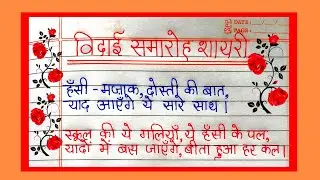 DATE:
PAGE:
विदाई समारोह शायरी
हँसी - मज़ाक, दोस्ती की बात,
याद आएँगे ये सारे साथ।
स्कूल की ये गलियाँ, ये हँसी के पल,
यादों में बस जाएँगे, बीता हुआ हर कल।